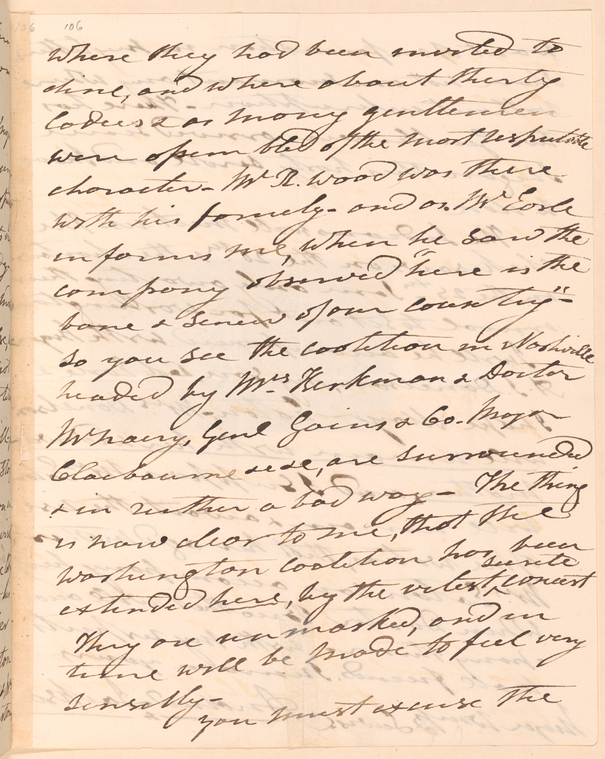 106
where they had been invited to
dine, and where about thirty
Ladies & as many gentlemen
were assembled of the most respectable
character - Mr R. Wood was there
with his family - and as Mr Earle
informs me, when he saw the
company observed "here is the
bone & sinew of our country" -
so you see the coalition in Nashville
headed by Mrs Kirkman & Doctor
McNairy, Genl Gains & Co. Major
Claibourne &c &c, are surrounded
& in rather a bad way - The thing
is now clear to me, that the
Washington coalition has been
extended here, by the vilest secrete concert
They are unmasked, and in
time will be made to feel very
sensibly -
you must excuse the